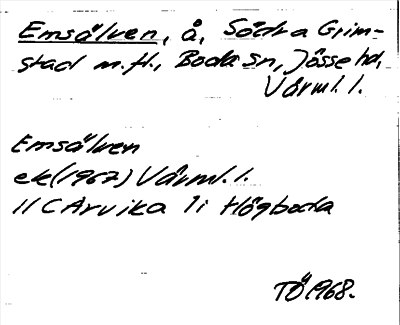 Emsälven, å, Södra Grim-
stad m.fl., Boda sn, Jösse hd,
Värml. l.
Emsälven
ek(1967) Värml. l.
11 C Arvika 1i Högboda
TÖ 1968.